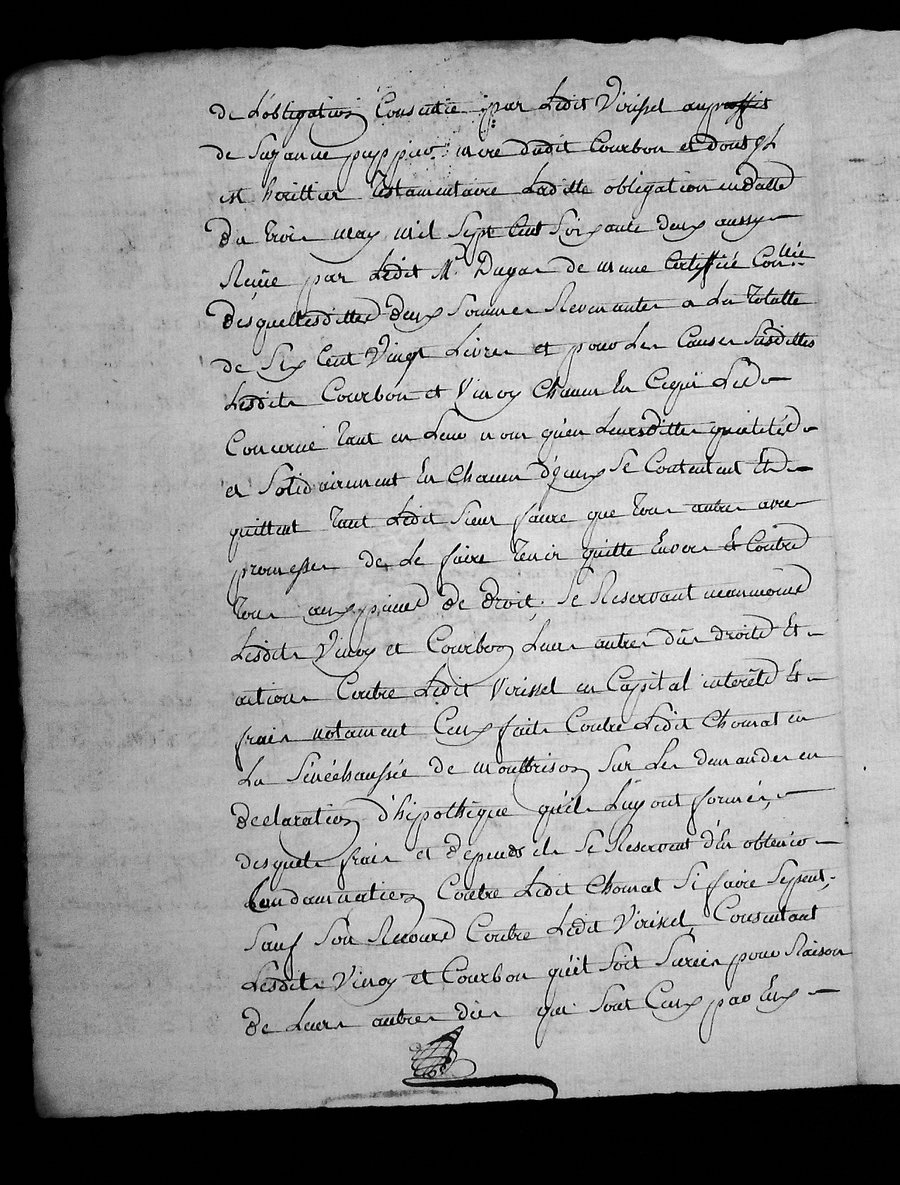 de L'obligation Consentie par Ledit Virissel au proffit
de Suzanne puppier mere dudit Courbon et dont il
est heritier Testamentaire Laditte obligation en datte
du trois may mil Sept Cent Soixante deux aussy
Reçüe par Ledit Mr. Dugas de meme Certiffié Con.llée
desquellesdittes deux Sommes Revenantes a La Totalle
de Six Cent Vingt Livres et pour Les Causes Susdittes
Lesdits Courbon et Vinoy Chacun En Cequi Les
Concerne Tant en Leur nom qu'en Leursdittes qualités
et Solidairement En Chacun d'yceux Se Contentent Et
quittent Tant Ledit Sieur faure que Tous autres avec
promesse de Le faire Tenir quitte Envers Et Contre
Tous aux peines de droit, Se Reservant neanmoins
Lesdits Vinoy et Courbon Leurs autres dûs droits Et
actions Contre Ledit Virissel en Capital interêts Et
frais notament Ceux faits Contre Ledit Chomat en
La Sénéchaussée de montbrison Sur Les demandes en
declaration d'hipothèque qu'ils Luy ont formés,
desquels frais et depends ils Se Reservent d'En obtenir
Condamnation Contre Ledit Chomat Si faire Se peut,
Sauf Son Recours Contre Ledit Virissel, Consentant
Lesdits Vinoy et Courbon qu'il Soit Surcis pour Raison
de Leurs autres dûs qui Sont Ceux par Eux